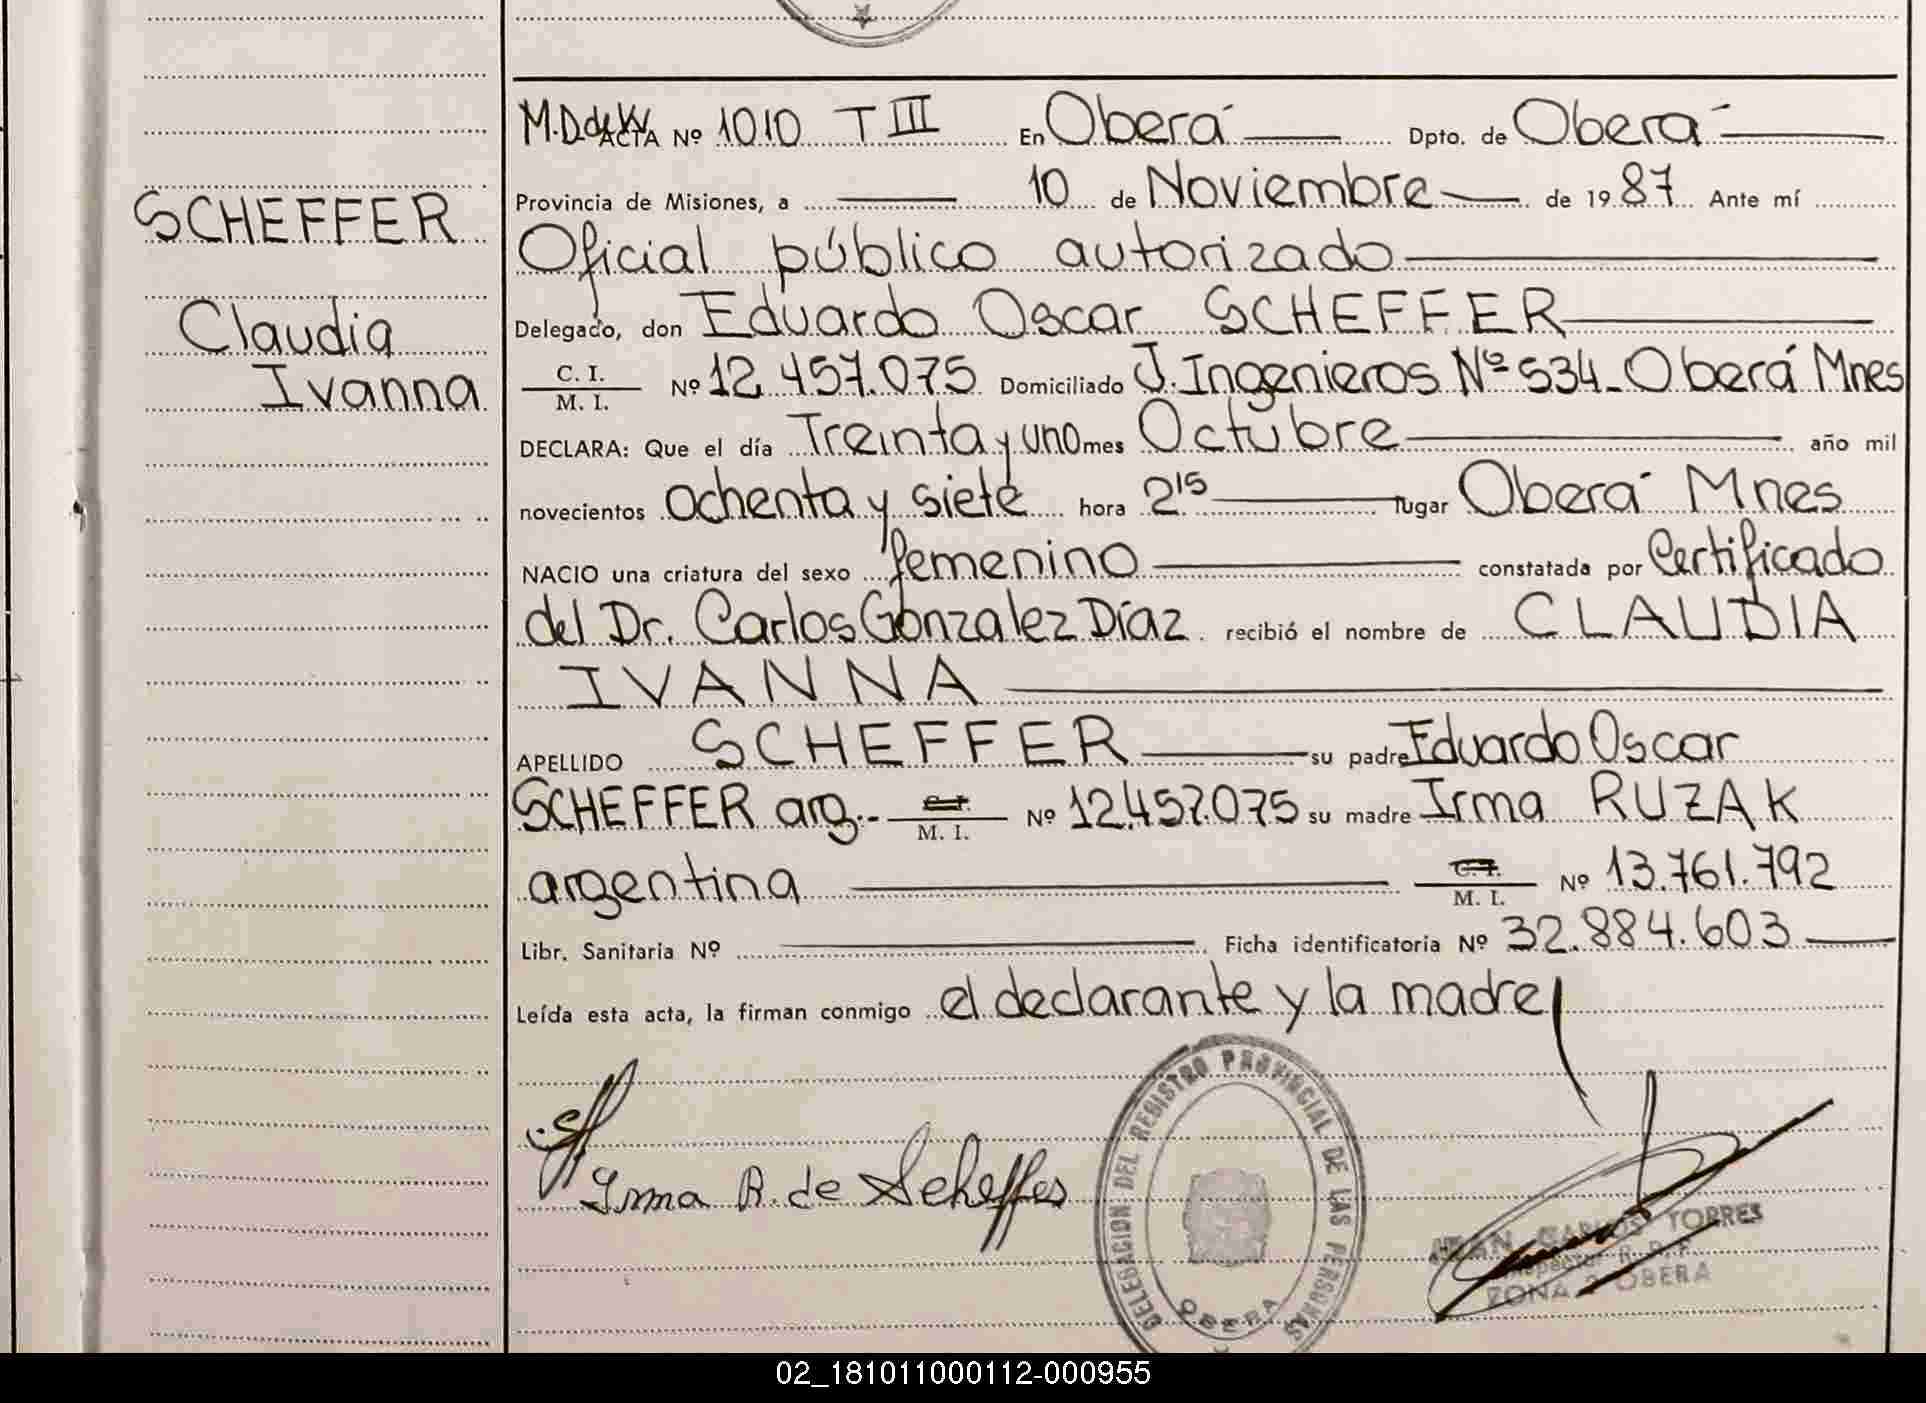 M.D.deW. ACTA Nº 1010 T III En Oberá Dpto. de Oberá
Provincia de Misiones, a 10 de Noviembre de 1987 Ante mí
SCHEFFER
Oficial público autorizado
Claudia
Ivanna
Delegado, don Eduardo Oscar SCHEFFER
C. I.
M. I. Nº 12.457.075 Domiciliado J. Ingenieros Nº 534 - Oberá Mnes
DECLARA: Que el día Treinta y uno mes Octubre año mil
novecientos ochenta y siete hora 2 15 lugar Oberá Mnes
NACIO una criatura del sexo femenino constatada por Certificado
del Dr. Carlos Gonzalez Díaz recibió el nombre de CLAUDIA
IVANNA
APELLIDO SCHEFFER su padre Eduardo Oscar
SCHEFFER arg.- C. I.
M. I. Nº 12.457.075 su madre Irma RUZAK
argentina C. I.
M. I. Nº 13.761.792
Libr. Sanitaria Nº Ficha identificatoria Nº 32.884.603
Leída esta acta, la firman conmigo el declarante y la madre
Irma R. de Scheffer
DELEGACION DEL REGISTRO PROVINCIAL DE LAS PERSONAS
OBERA
CARLOS TORRES
Inspector R. P. P.
ZONA 2 OBERA
02_181011000112-000955